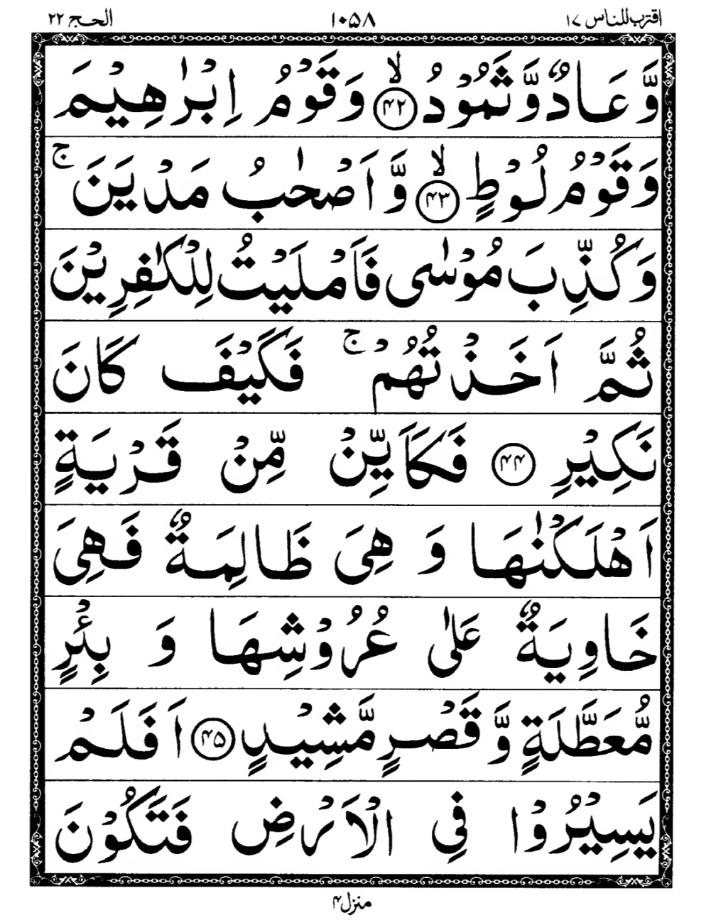 اقترب للناس ١٧ ١٠٥٨ الحج ٢٢
وَّعَادٌ وَّثَمُوْدُ ﴿۴۲﴾ۙ وَقَوْمُ اِبْرٰهِيْمَ
وَقَوْمُ لُوْطٍ ﴿۴۳﴾ۙ وَّاَصْحٰبُ مَدْيَنَ ۚ
وَكُذِّبَ مُوْسٰى فَاَمْلَيْتُ لِلْكٰفِرِيْنَ
ثُمَّ اَخَذْتُهُمْ ۚ فَكَيْفَ كَانَ
نَكِيْرِ ﴿۴۴﴾ فَكَاَيِّنْ مِّنْ قَرْيَةٍ
اَهْلَكْنٰهَا وَ هِىَ ظَالِمَةٌ فَهِىَ
خَاوِيَةٌ عَلٰى عُرُوْشِهَا وَ بِئْرٍ
مُّعَطَّلَةٍ وَّقَصْرٍ مَّشِيْدٍ ﴿۴۵﴾ اَفَلَمْ
يَسِيْرُوْا فِى الْاَرْضِ فَتَكُوْنَ
منزل ۴